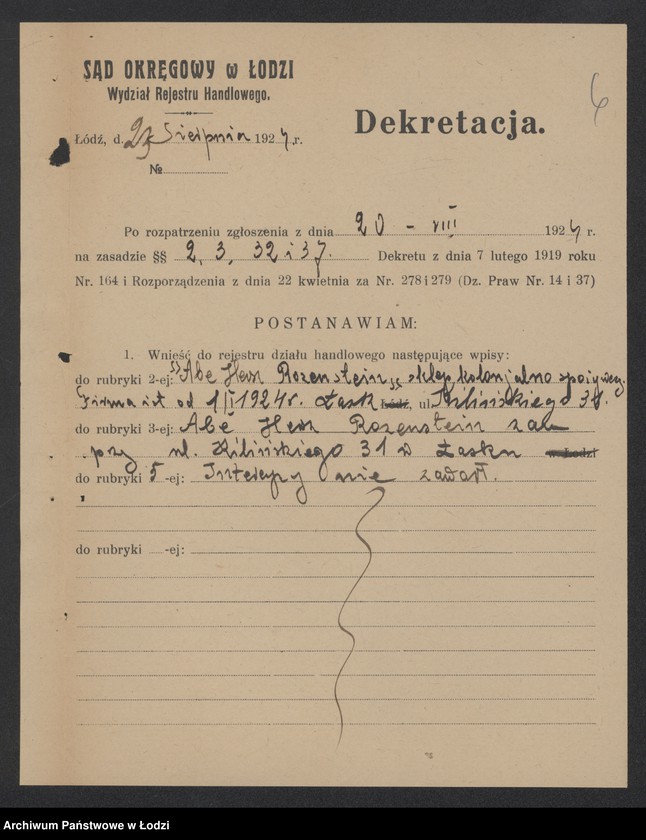 SĄD OKRĘGOWY w ŁODZI
Wydział Rejestru Handlowego.
6
Dekretacja.
Łódź, d. Sierpnia 1924 r.
№
Po rozpatrzeniu zgłoszenia z dnia 20 – VIII 1924 r.
na zasadzie §§ 2, 3, 32 i 37. Dekretu z dnia 7 lutego 1919 roku
Nr. 164 i Rozporządzenia z dnia 22 kwietnia za Nr. 278 i 279 (Dz. Praw Nr. 14 i 37)
POSTANAWIAM:
1. Wnieść do rejestru działu handlowego następujące wpisy:
do rubryki 2-ej: "Abe Hersz Rozenstein" sklep kolonjalno spożywczy.
Firma ist. od 1/I 1924 r. Łask Łódź, ul. Kilińskiego 31.
do rubryki 3-ej: Abe Hersz Rozenstein zam
przy ul. Kilińskiego 31 w Łasku w Łodzi
do rubryki 5-ej: Intercyzy nie zawarł.
do rubryki -ej:
Archiwum Państwowe w Łodzi